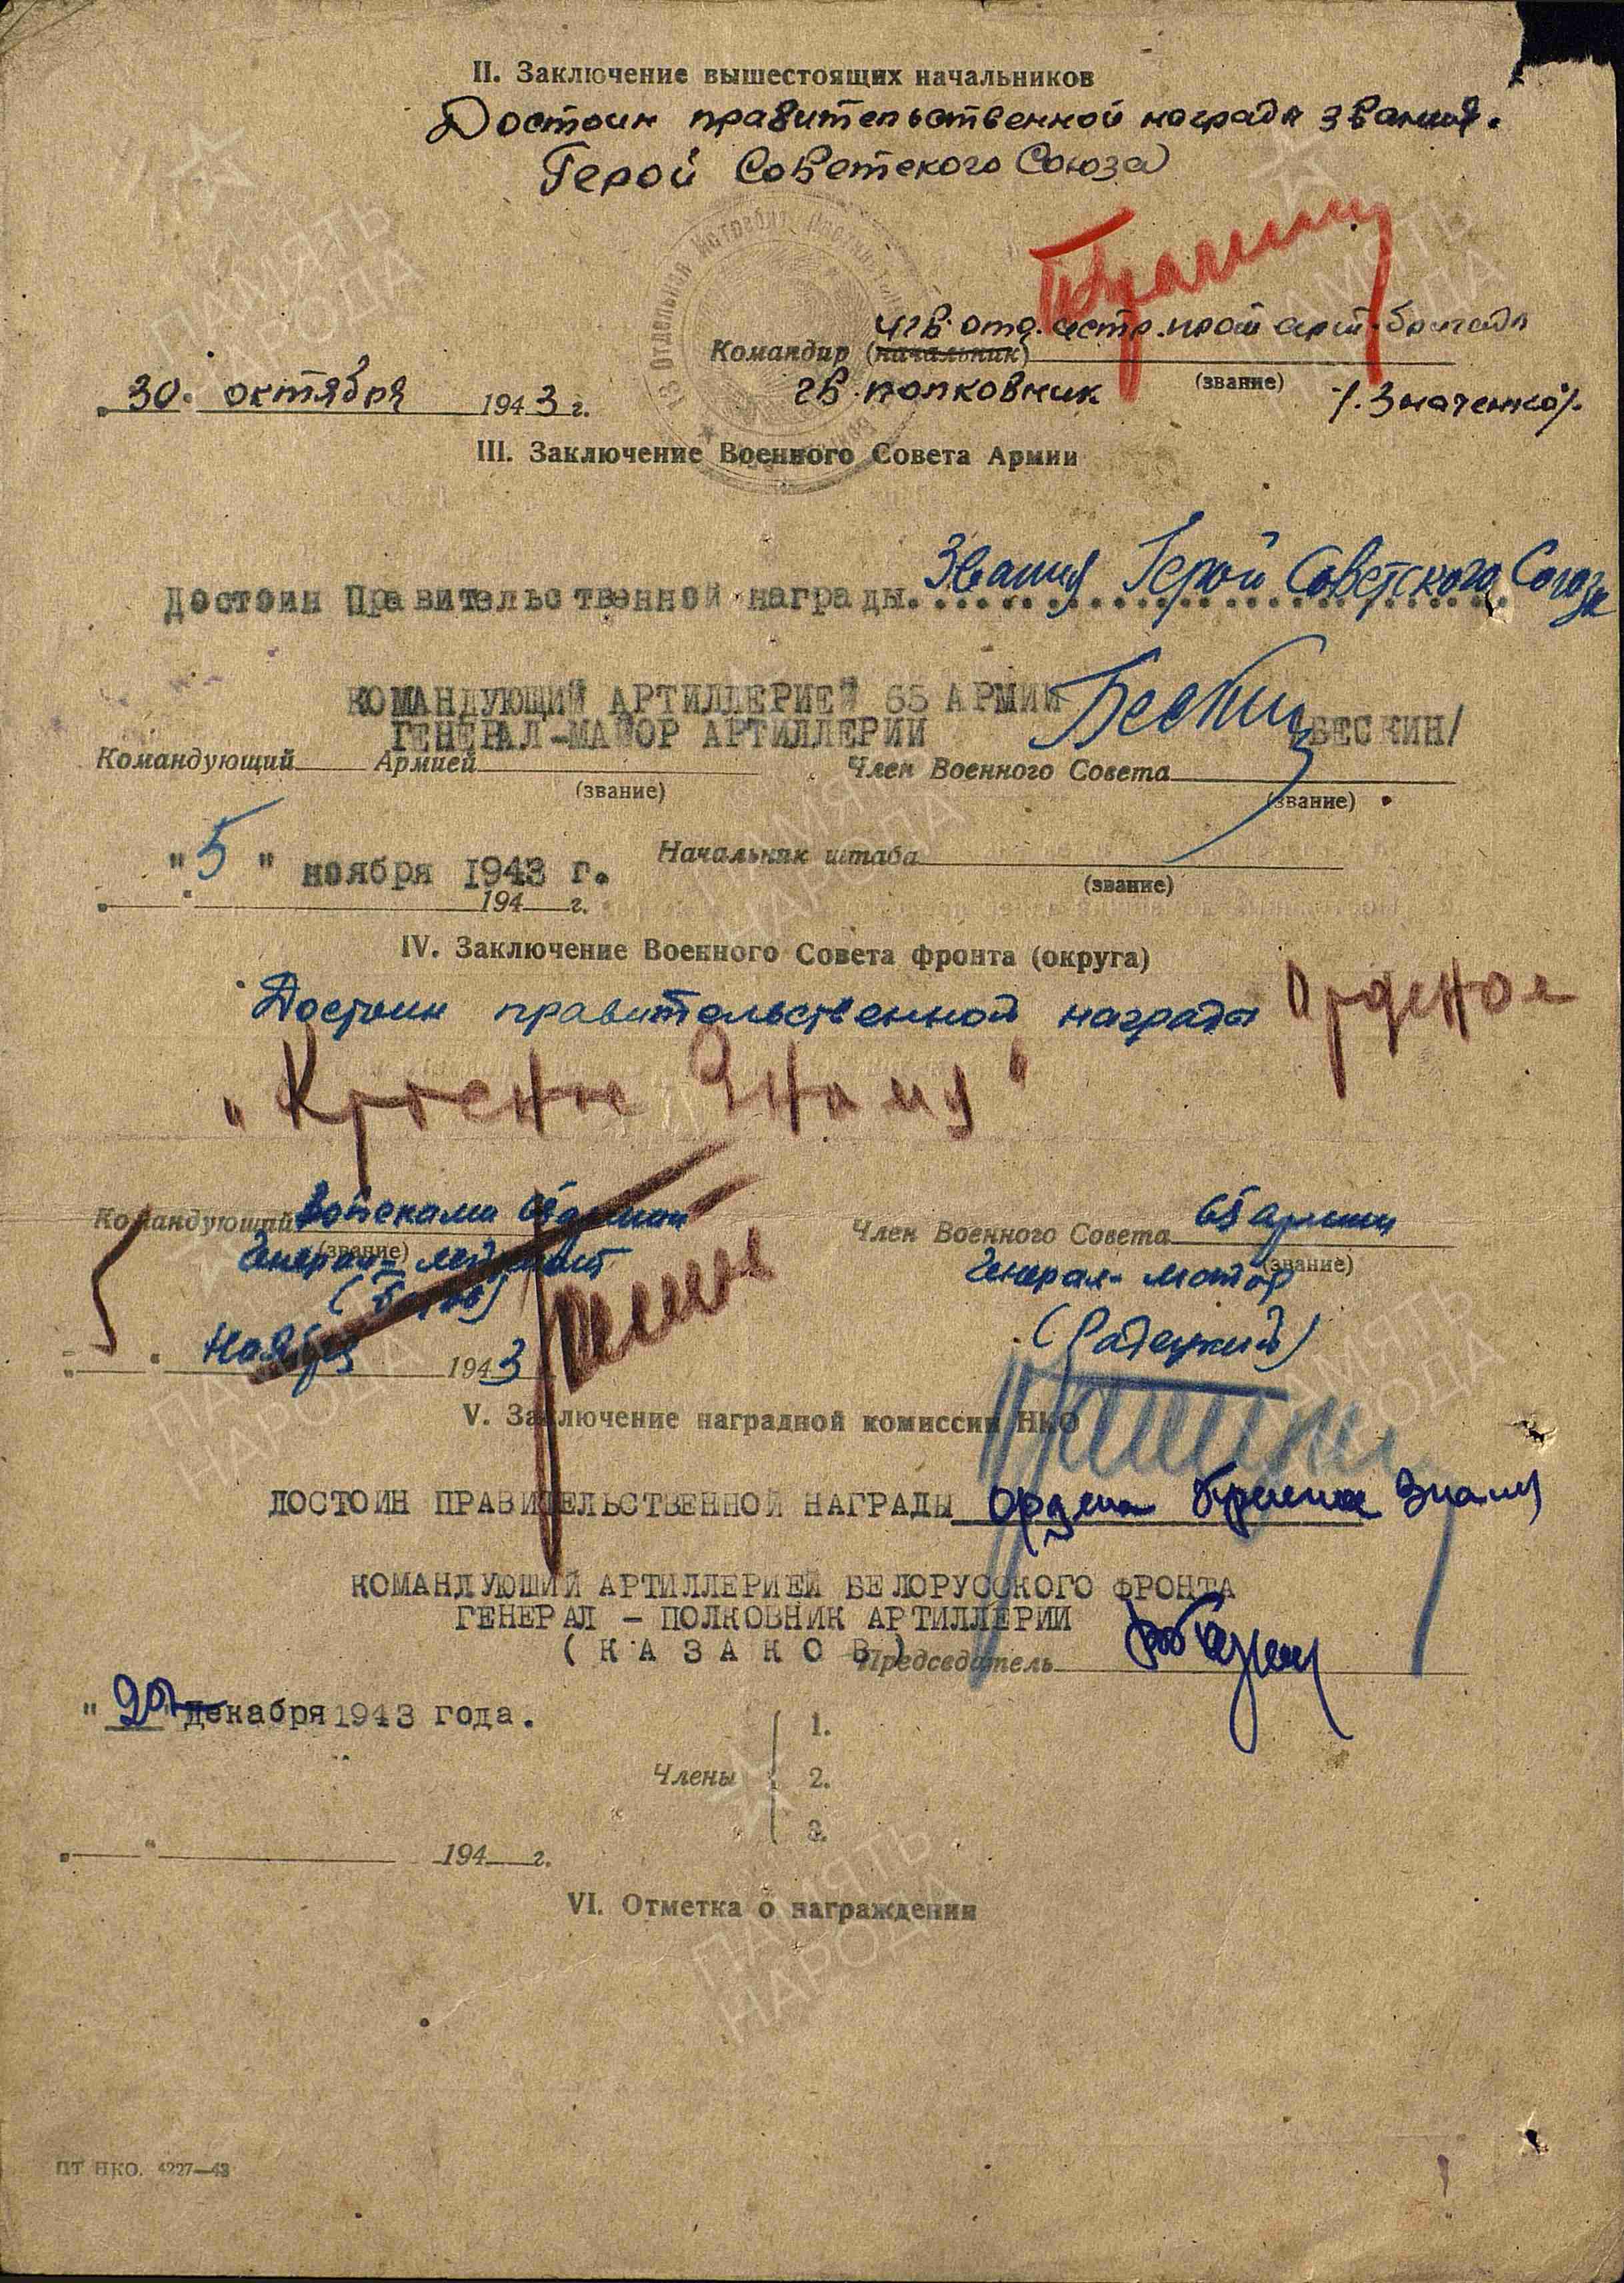 II. Заключение вышестоящих начальников
Достоин правительственной награды звания.
Герой Советского Союза
4 гв. отд. истр. прот арт. бригады
Командир (начальник)
(звание)
гв. полковник /. Значенко /.
30. октября 1943 г.
III. Заключение Военного Совета Армии
Достоин Правительственной награды. Звания Герой Советского Союза
КОМАНДУЮЩИЙ АРТИЛЛЕРИЕЙ 65 АРМИИ
ГЕНЕРАЛ-МАЙОР АРТИЛЛЕРИИ БЕСКИН/
Командующий Армией Член Военного Совета
(звание) (звание)
"5" ноября 1943 г. Начальник штаба
(звание)
194 г.
IV. Заключение Военного Совета фронта (округа)
Достоин правительственной награды Орденов
"Красное Знамя"
Командующий войсками 65 армии Член Военного Совета 65 армии
(звание) (звание)
Генерал-лейтенант Генерал-майор
(Батов) (Радецкий)
Ноября 1943
V. Заключение наградной комиссии НКО
ДОСТОИН ПРАВИТЕЛЬСТВЕННОЙ НАГРАДЫ Ордена Красное Знамя
КОМАНДУЮЩИЙ АРТИЛЛЕРИЕЙ БЕЛОРУССКОГО ФРОНТА
ГЕНЕРАЛ - ПОЛКОВНИК АРТИЛЛЕРИИ
( К А З А К О В )
Председатель
декабря 1943 года.
Члены
1.
2.
3.
" 194 г.
VI. Отметка о награждении
ПТ НКО. 4227—43
ПАМЯТЬ НАРОДА